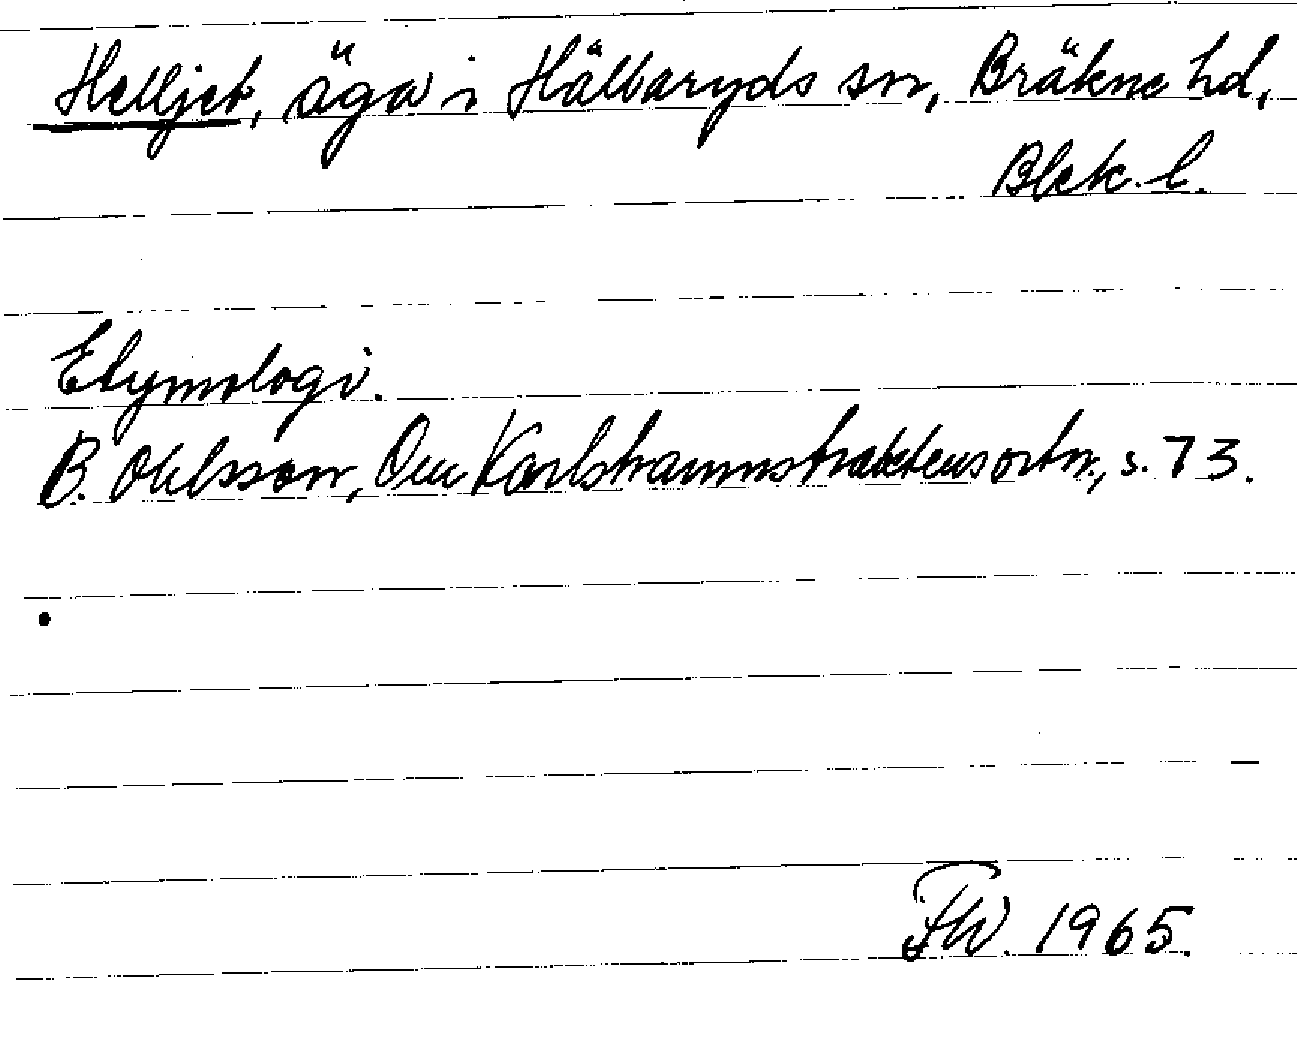 Helljet, äga i Hällaryds sn, Bräkne hd,
Blek. l.
Etymologi.
B. Ohlsson, Om Karlshamnstraktens ortn., s. 73.
FW. 1965.